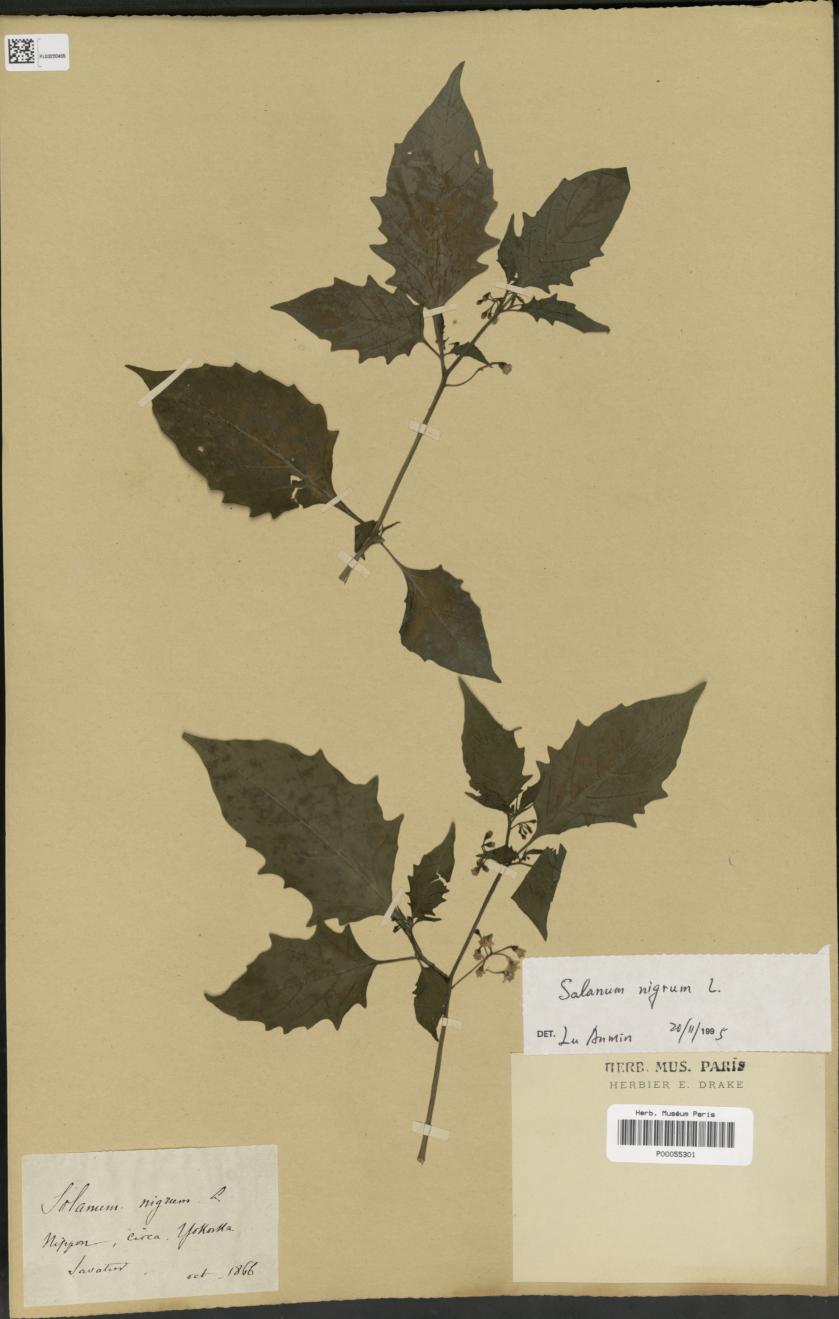 Solanum nigrum L.
DET. Lu Anmin 20/11/1995
HERB. MUS. PARIS
HERBIER E. DRAKE
Herb. Muséum Paris
P00055301
Solanum nigrum L
Nippon, circa Yokoska
Savatier
oct. 1866